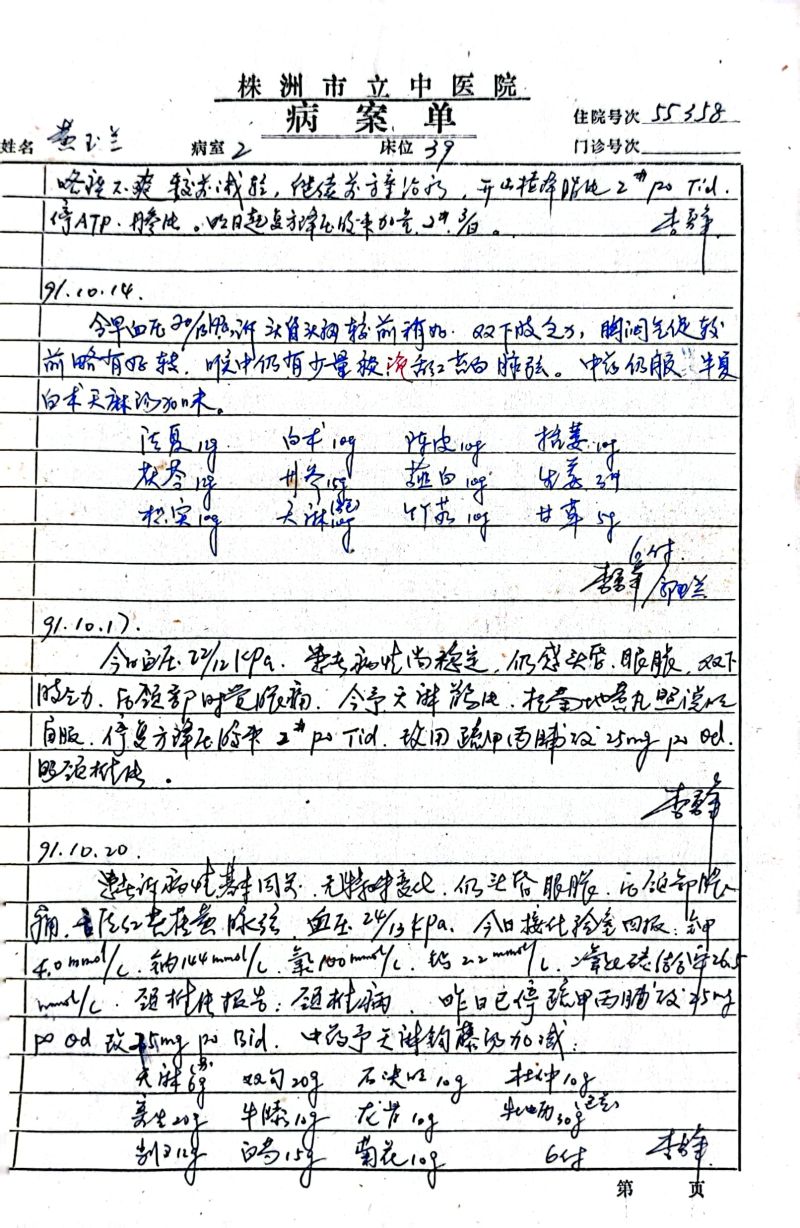 株洲市立中医院
病案单
住院号次 55358
姓名 黄玉兰 病室 2 床位 39 门诊号次
咯痰不爽较前减轻，继续前方案治疗，开山楂降脂片 2# po Tid.
停ATP、片。明日起复方降压胶束加量 2# 3/日。 李
91.10.14.
今早血压20/ 诉头昏头痛较前稍好. 双下肢乏力, 胸闷气促较
前略有好转. 喉中仍有少量痰 淡红苔白脉弦。中药仍服半夏
白术天麻汤加味。
法夏12g 白术10g 陈皮10g 括蒌10g
茯苓12g 丹参15g 薤白10g 生姜3片
枳实10g 天麻10g 竹茹10g 甘草5g
6付
李 郭
91.10.17.
今日血压22/12 KPa. 患者病情尚稳定, 仍感头昏. 眼胀. 双下
肢乏力. 后颈部时觉胀痛. 今予天麻片. 杞菊地黄丸照说明
自服. 停复方降压胶束 2# po Tid. 改用疏甲丙脯酸25mg po Qd.
照颈椎片。
李
91.10.20.
患者诉病情基本同前. 无特殊变化. 仍头昏眼胀. 后颈部胀
痛. 舌质红苔黄脉弦. 血压24/13 KPa. 今日接化验室回报: 钾
4.0mmol/L. 钠144mmol/L. 氯100mmol/L. 钙2.2mmol/L. 二氧化碳结合率26.5
mmol/L. 颈椎片报告: 颈椎病. 昨日已停疏甲丙脯酸25mg
po Qd 改25mg po Bid. 中药予天麻钩藤汤加减:
天麻6g 双勾20g 石决明10g 杜仲10g
寄生20g 牛膝10g 龙骨10g 牡蛎30g
白芍15g 菊花10g 6付 李
第 页